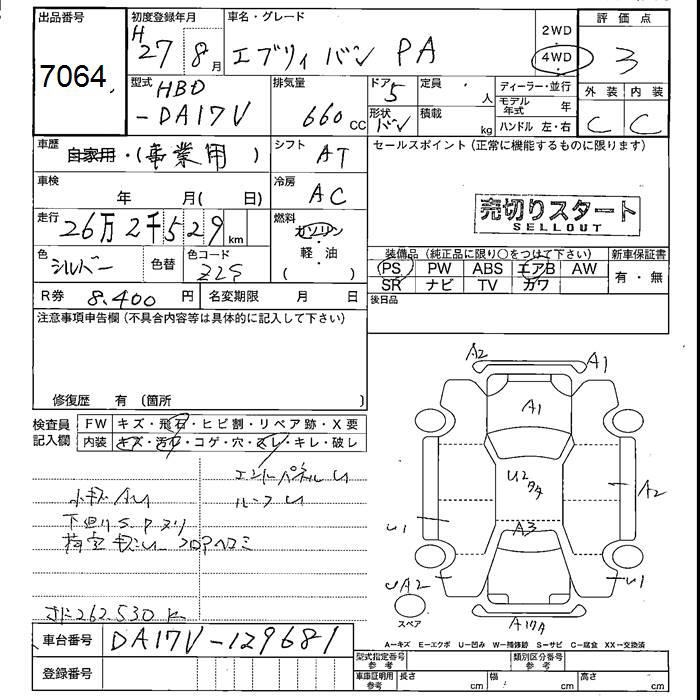 出品番号
7064
初度登録年月
H27年8月
車名・グレード
エブリィ バン PA
2WD
4WD
評価点
3
型式
HBD
-DA17V
排気量
660cc
ドア
5
定員
人
形状
バン
積載
kg
ディーラー・並行
モデル年式
年
ハンドル 左・右
外装
内装
C
C
車歴
自家用・(事業用)
シフト
AT
セールスポイント(正常に機能するものに限ります)
車検
年 月( 日)
冷房
AC
売切りスタート
SELLOUT
走行
26万2千529km
燃料
ガソリン
軽・油
( )
色
シルバー
色替
色コード
Z2S
装備品(純正品に限り○をつけて下さい)
新車保証書
PS
PW
ABS
エアB
AW
SR
ナビ
TV
カワ
有・無
R券
8,400円
名変期限
月 日
後日品
注意事項申告欄(不具合内容等は具体的に記入して下さい)
修復歴 有(箇所 )
検査員
記入欄
FW
キズ・飛石・ヒビ割・リペア跡・X要
内装
キズ・汚れ・コゲ・穴・スレ・キレ・破レ
エンドパネルU
小キズAU
ルーフU
下廻りS
フロアヘコミ
262,530K
A2
A1
A1
U2
A2
U1
A3
UA2
U1
スペア
A-キズ E-エクボ U-凹み W-補修跡 S-サビ C-腐食 XX-交換済
車台番号
DA17V-129681
登録番号
型式指定番号
参考
類別区分番号
参考
車庫証明用
参考
長さ
cm
幅
cm
高さ
cm